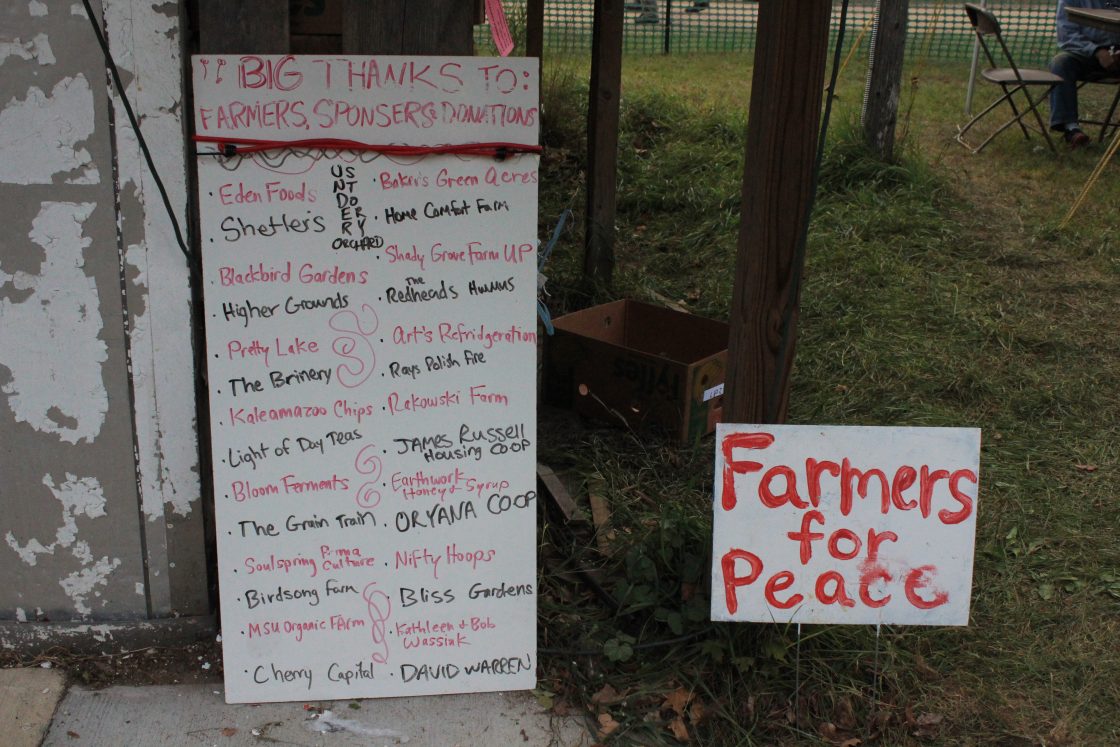 !! BIG THANKS TO:
FARMERS, SPONSERS & DONATIONS
· Eden Foods
· Shetler's
· Blackbird Gardens
· Higher Grounds
· Pretty Lake
· The Brinery
· Kaleamazoo Chips
· Light of Day Teas
· Bloom Ferments
· The Grain Train
· Soulspring Perma Culture
· Birdsong Farm
· MSU Organic FArm
· Cherry Capital
US
NT
DO
ER
RY
ORCHARD
· Baker's Green Acres
· Home Comfort Farm
· Shady Grove Farm UP
· The Redheads Hummus
· Art's Refridgeration
· Rays Polish Fire
· Rakowski Farm
· JAMES RUSSELL
Housing CO-OP
· Earthwork
Honey & Syrup
· ORYANA COOP
· Nifty Hoops
· Bliss Gardens
· Kathleen & Bob
Wassink
· DAVID WARREN
Farmers
for
Peace